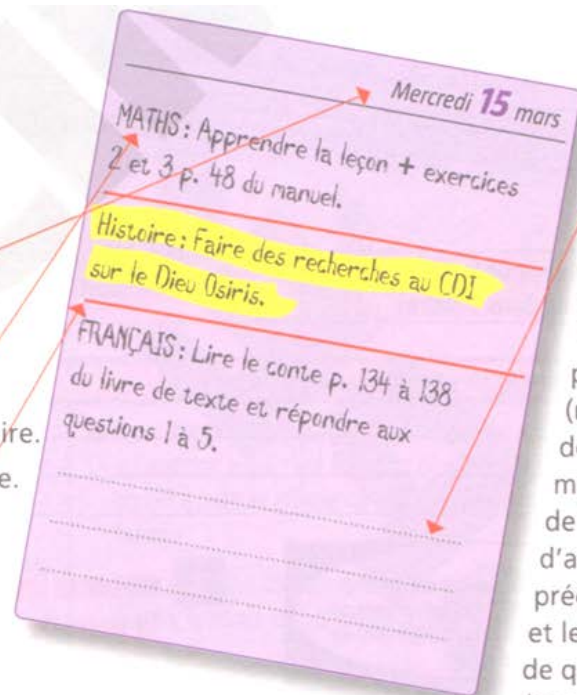 Mercredi 15 mars
MATHS : Apprendre la leçon + exercices
2 et 3 p. 48 du manuel.
Histoire : Faire des recherches au CDI
sur le Dieu Osiris.
FRANÇAIS : Lire le conte p. 134 à 138
du livre de texte et répondre aux
questions 1 à 5.
ire.
e.
p
(
de
m
de
d'a
préc
et le
de q